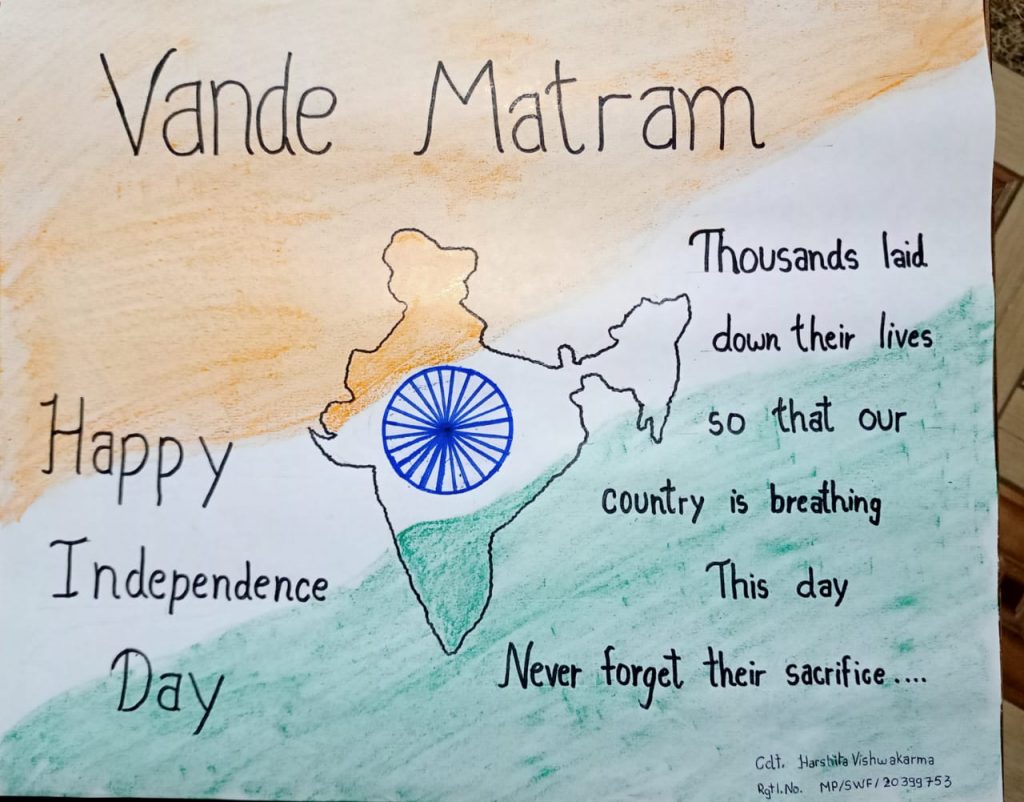 Vande Matram
Happy
Independence
Day
Thousands laid
down their lives
so that our
country is breathing
This day
Never forget their sacrifice....
Cdt. Harshita Vishwakarma
Rgtl.No. MP/SWF/20399753